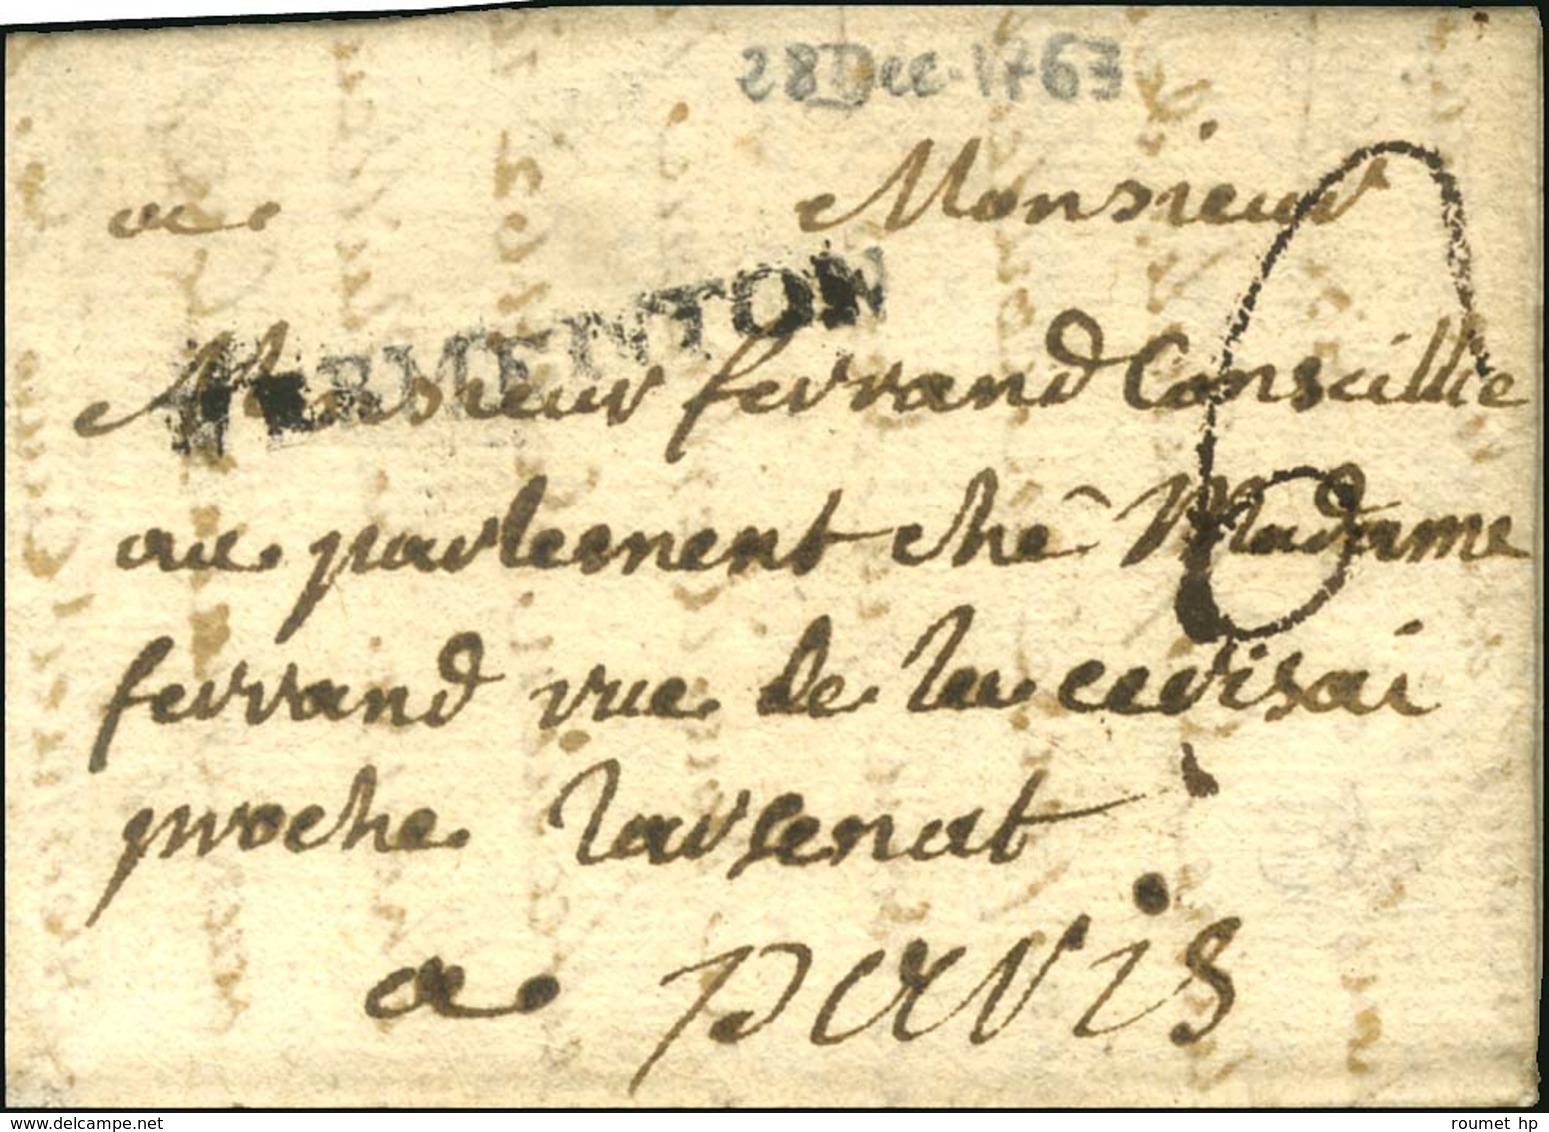 28 Dec. 1763
a Monsieur
VERMENTON
Monsieur ferrand Conseillie
au parlement ché Madame
ferrand rue de la cerisai
proche larsenat
a paris
6
delcampe.net
roumet hp